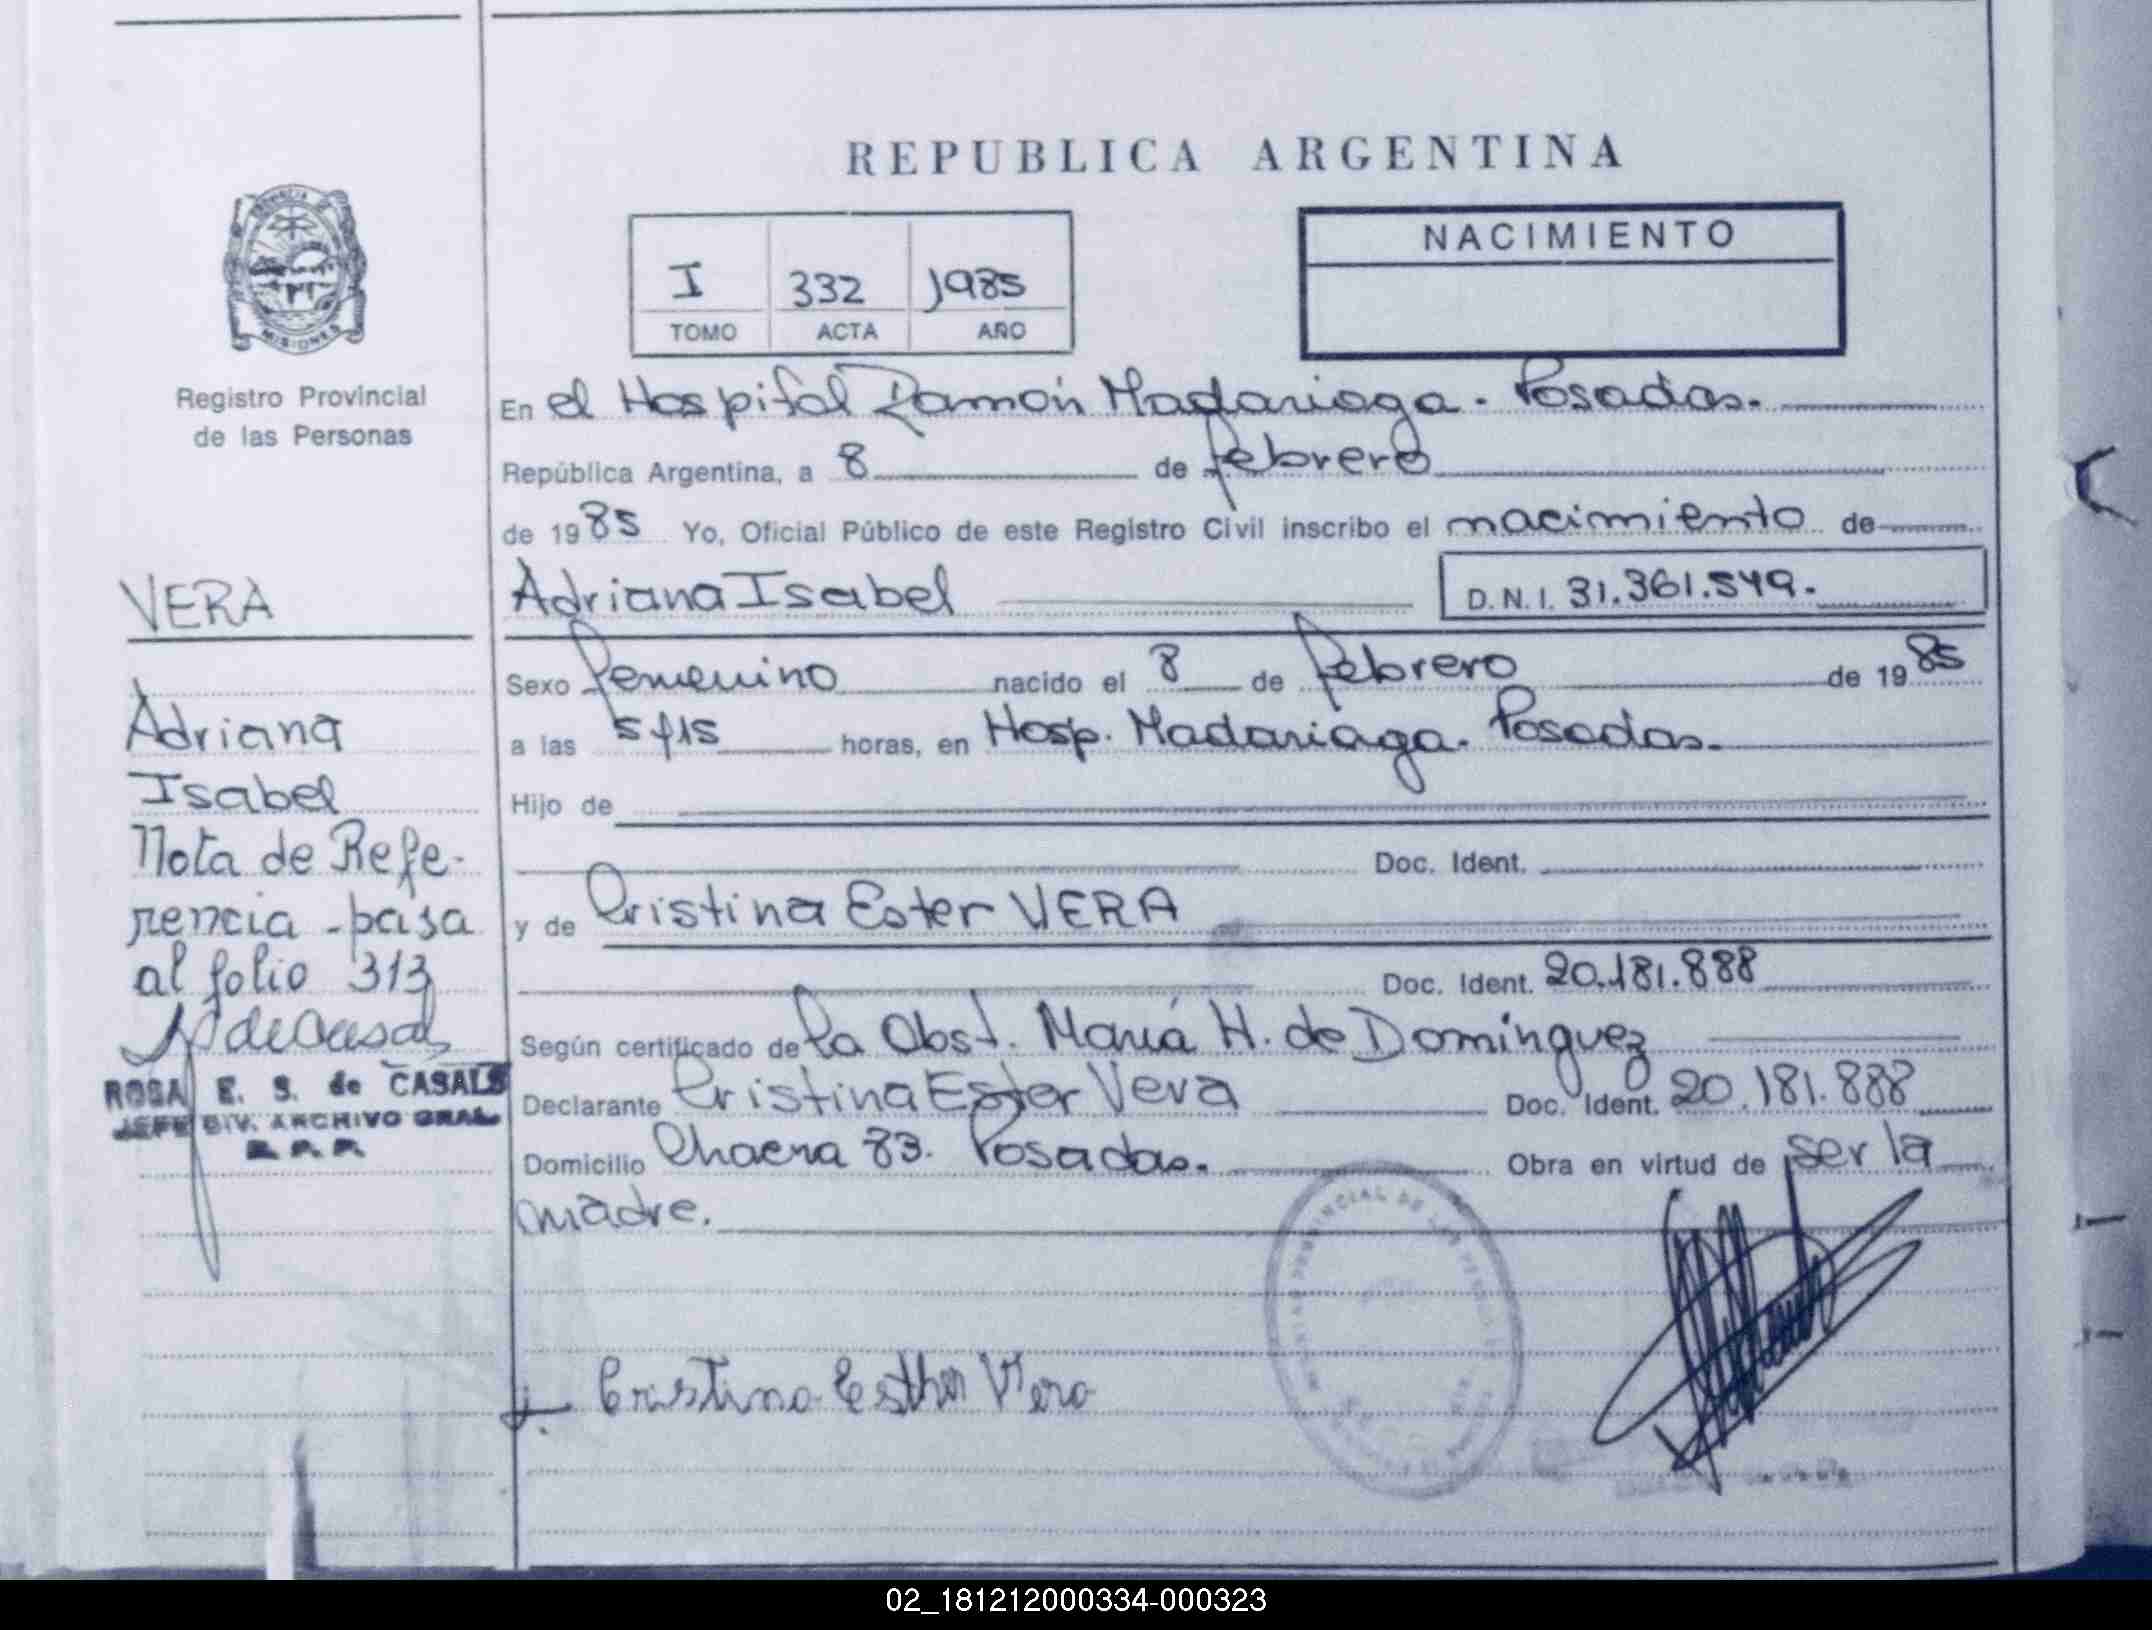 REPUBLICA ARGENTINA
I 332 1985
TOMO ACTA AÑO
NACIMIENTO
MISIONES
Registro Provincial
de las Personas
VERA
Adriana
Isabel
Nota de Refe-
rencia - pasa
al folio 313
ROSA E. S. de CASALS
JEFE DIV. ARCHIVO GRAL
R. P. P.
En el Hospital Ramón Madariaga. Posadas.
República Argentina, a 8 de febrero
de 1985 Yo, Oficial Público de este Registro Civil inscribo el nacimiento de
Adriana Isabel D.N.I. 31.361.549.
Sexo femenino nacido el 8 de febrero de 1985
a las 5 y 15 horas, en Hosp. Madariaga. Posadas.
Hijo de
Doc. Ident.
y de Cristina Ester VERA
Doc. Ident. 20.181.888
Según certificado de la Obst. María H. de Domínguez
Declarante Cristina Ester Vera Doc. Ident. 20.181.888
Domicilio Chacra 83. Posadas. Obra en virtud de ser la
madre.
Cristina Esther Vera
02_181212000334-000323